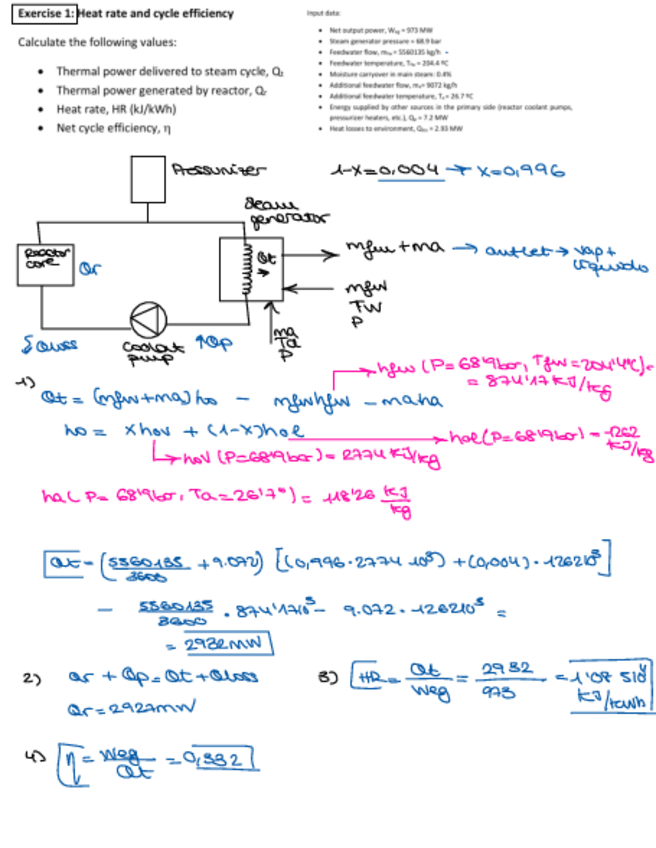 Exercise 1: Heat rate and cycle efficiency
Calculate the following values:
• Thermal power delivered to steam cycle, Qt
• Thermal power generated by reactor, Qr
• Heat rate, HR (kJ/kWh)
• Net cycle efficiency, η
Input data:
• Net output power, Weg = 973 MW
• Steam generator pressure = 68.9 bar
• Feedwater flow, mfw = 5560135 kg/h
• Feedwater temperature, Tfw = 204.4 ºC
• Moisture carryover in main steam: 0.4%
• Additional feedwater flow, ma= 9072 kg/h
• Additional feedwater temperature, Ta= 26.7 ºC
• Energy supplied by other sources in the primary side (reactor coolant pumps,
pressurizer heaters, etc.), Qp = 7.2 MW
• Heat losses to environment, Qloss = 2.93 MW
Pressurizer
1-x=0,004 → x=0,996
Steam
generator
Reactor
core
Qr
Qt
mfw+ma → outlet → vap+
líquido
mfw
TW
P
ma
Ta
P
Qloss
coolant
pump
↑Qp
1)
hfw (P=68'9bar, Tfw=204'4ºC)=
= 874'17 kJ/kg
Qt = (mfw+ma)ho - mfwhfw - maha
ho = xhov + (1-x)hoe
hoe(P=68'9bar)=1262
kJ/kg
hov (P=68'9bar)= 2774 kJ/kg
ha( P= 68'9bar, Ta=26'7º)= 118'26 kJ/kg
Qt = (5560135/3600 + 9.072) [(0,996·2774·10³)+(0,004)·1262·10³]
- 5560135/3600 · 874'17·10³ - 9.072 · 1262·10³ =
= 2932MW
2) Qr + Qp = Qt + Qloss
Qr=2927MW
3) HR = Qt/Weg = 2932/973 = 1'08 510⁴
kJ/kWh
4) η = Weg/Qt = 0,332